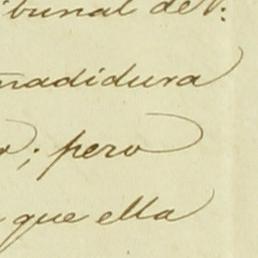 ibunal de V:
madidura
; pero
que ella